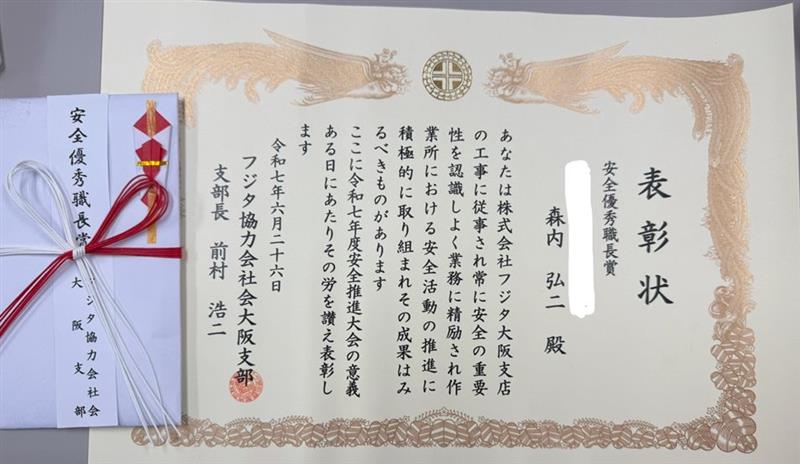 表彰状
安全優秀職長賞
森内 弘二 殿
あなたは株式会社フジタ大阪支店
の工事に従事され常に安全の重要
性を認識しよく業務に精励され作
業所における安全活動の推進に
積極的に取り組まれその成果はみ
るべきものがあります
ここに令和七年度安全推進大会の意義
ある日にあたりその労を讃え表彰し
ます
令和七年六月二十六日
フジタ協力会社会大阪支部
支部長 前村 浩二
安全優秀職長賞
フジタ協力会社会
大阪支部